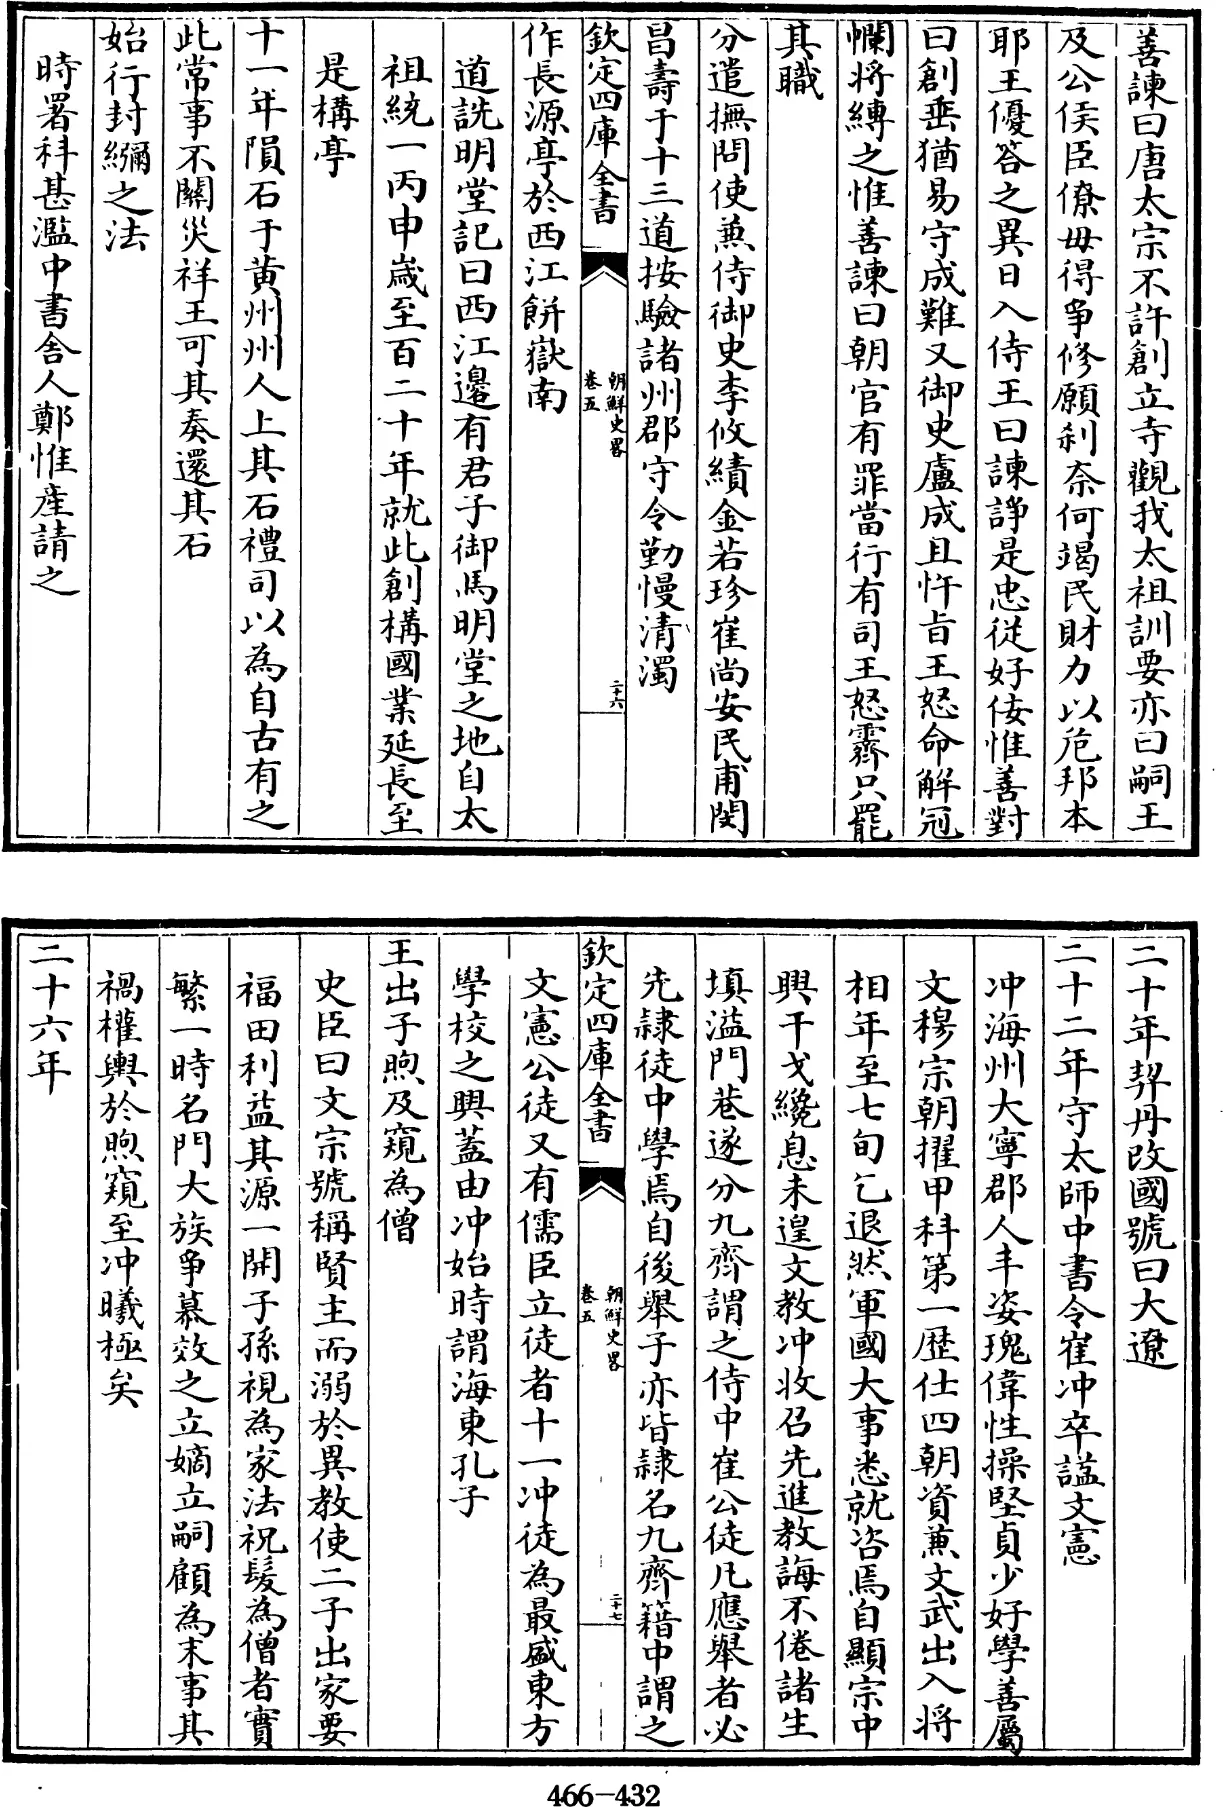 善諫曰唐太宗不許創立寺觀我太祖訓要亦曰嗣王
及公侯臣僚毋得爭修願刹奈何竭民財力以危邦本
耶王優答之異日入侍王曰諫諍是忠從好佞惟善對
曰創垂猶易守成難又御史盧成且忤旨王怒命解冠
幱将縛之惟善諫曰朝官有罪當行有司王怒霽只罷
其職
分遣撫問使兼侍御史李攸績金若珍崔尚安民甫閔
昌壽于十三道按驗諸州郡守令勤慢清濁
欽定四庫全書
朝鮮史畧
卷五
二十六
作長源亭於西江餅嶽南
道詵明堂記曰西江邊有君子御馬明堂之地自太
祖統一丙申嵗至百二十年就此創構國業延長至
是構亭
十一年隕石于黄州州人上其石禮司以為自古有之
此常事不關災祥王可其奏還其石
始行封緥之法
時署科甚濫中書舍人鄭惟産請之
二十年契丹改國號曰大遼
二十二年守太師中書令崔冲卒謚文憲
冲海州大寧郡人丰姿瑰偉性操堅貞少好學善屬
文穆宗朝擢甲科第一歴仕四朝資兼文武出入将
相年至七旬乞退然軍國大事悉就咨焉自顯宗中
興干戈纔息未遑文教冲收召先進教誨不倦諸生
填溢門巷遂分九齊謂之侍中崔公徒凡應舉者必
先隷徒中學焉自後舉子亦皆隷名九齊籍中謂之
欽定四庫全書
朝鮮史畧
卷五
二十七
文憲公徒又有儒臣立徒者十一冲徒為最盛東方
學校之興蓋由冲始時謂海東孔子
王出子煦及窺為僧
史臣曰文宗號稱賢主而溺於異教使二子出家要
福田利益其源一開子孫視為家法祝髮為僧者實
繁一時名門大族爭慕效之立嫡立嗣顧為末事其
禍權輿於煦窺至冲曦極矣
二十六年
466-432